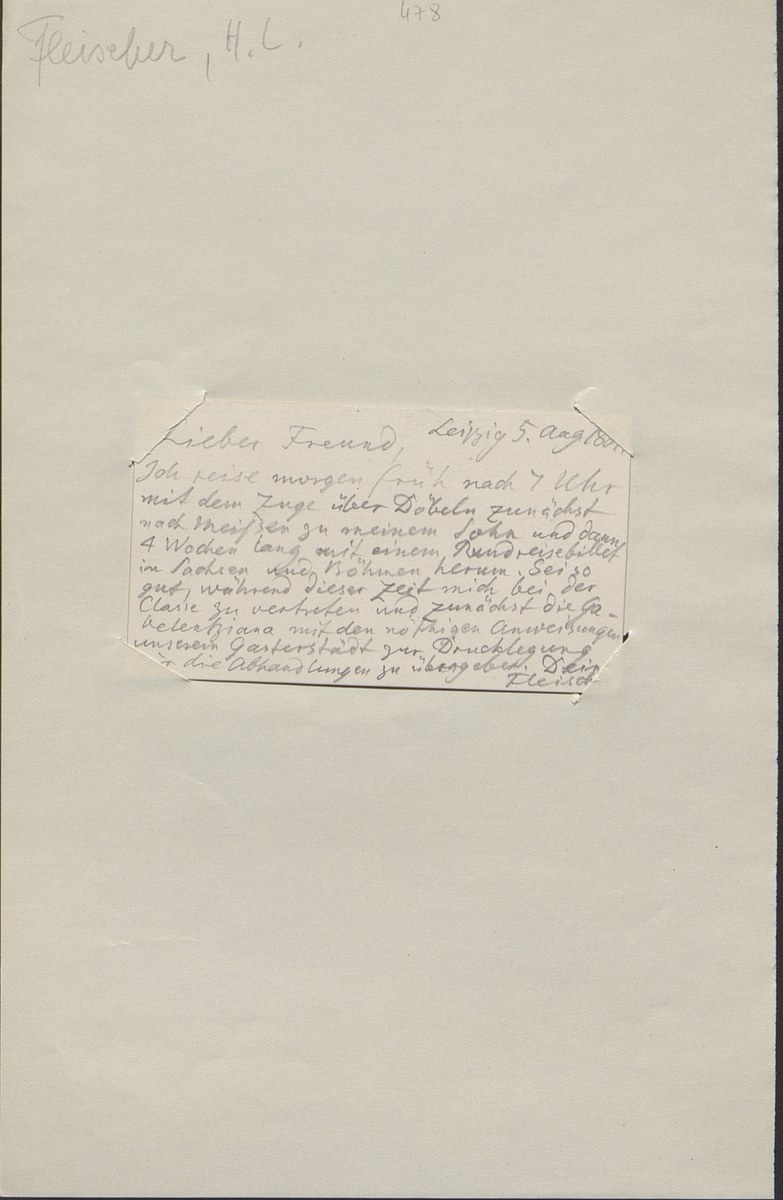 478
Fleischer, H. L.
Lieber Freund, Leipzig 5. Aug
Ich reise morgen früh nach 7 Uhr
mit dem Zuge über Döbeln zunächst
nach Meißen zu meinem Sohn und dann
4 Wochen lang mit einem Rundreisebillet
in Sachsen und Böhmen herum. Sei so
gut, während dieser Zeit mich bei der
Classe zu vertreten und zunächst die Ga-
belentziana mit den nöthigen Anweisungen
unserem Gasterstädt zur Drucklegung
die Abhandlungen zu übergeben. Dein
Fleisch